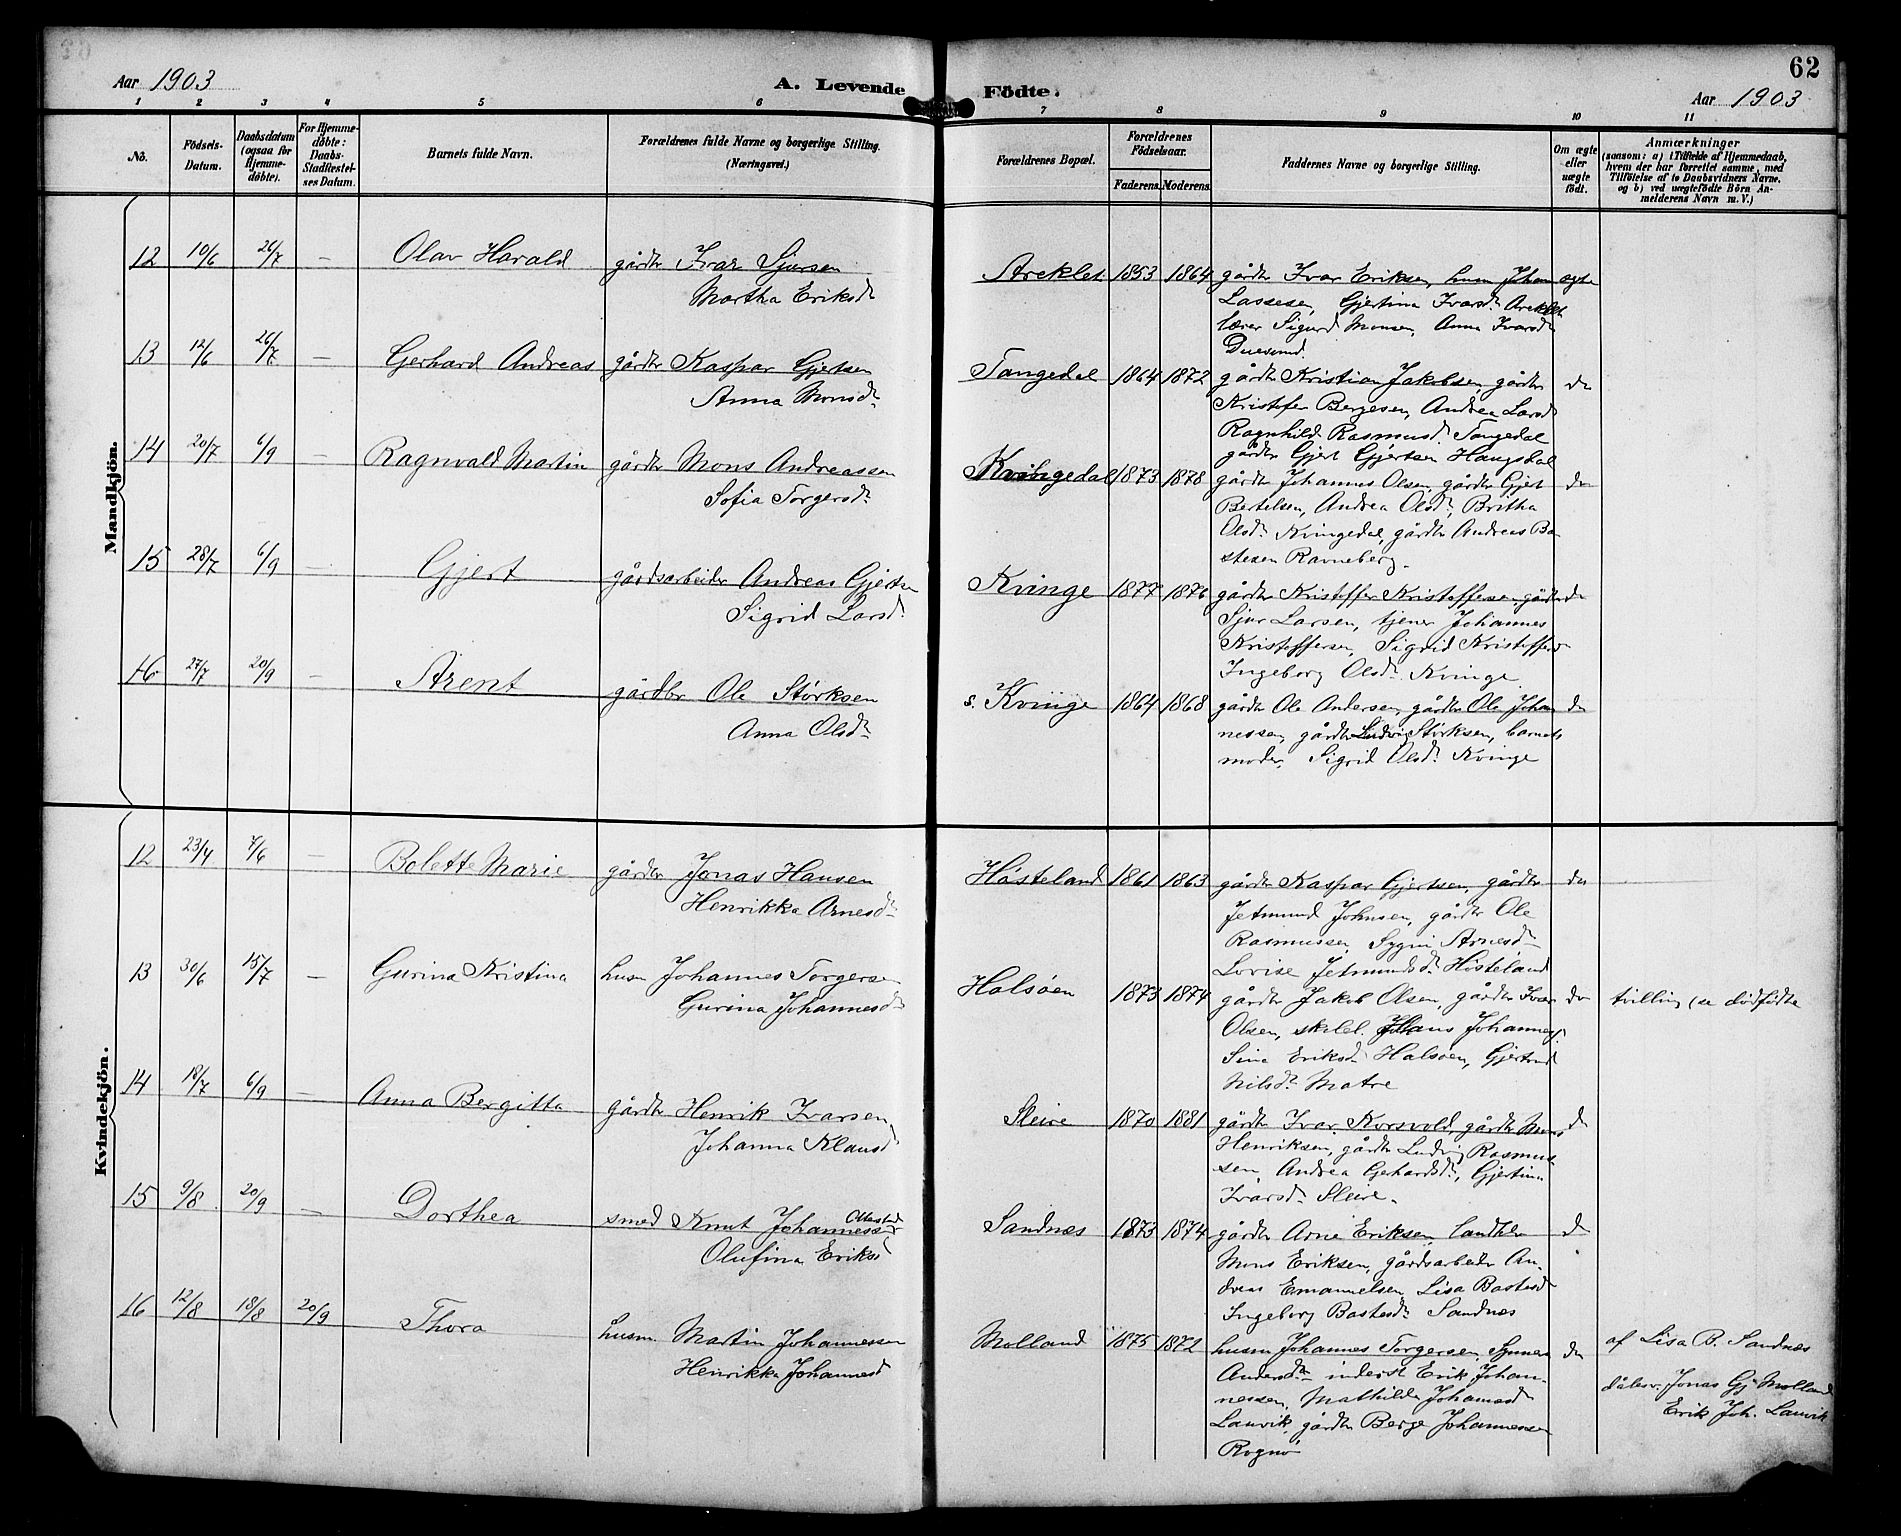 62
Aar 1903
A. Levende Födte.
Aar 1903
1 2 3 4 5 6 7 8 9 10 11
No.
Födsels-
Datum.
Daabsdatum
(ogsaa for
Hjemme-
döbte).
For Hjemme-
döbte:
Daabs-
Stadfæstel-
ses Datum.
Barnets fulde Navn.
Forældrenes fulde Navne og borgerlige Stilling.
(Næringsvei.)
Forældrenes Bopæl.
Forældrenes
Födselsaar.
Faderens. Moderens.
Faddernes Navne og borgerlige Stilling.
Om ægte
eller
uægte
födt.
Anmærkninger
(saasom: a) i Tilfælde af Hjemmedaab,
hvem der har forrettet samme, med
Tilföielse af to Daabsvidners Navne.
og b) ved uægtefödte Börn An-
melderens Navn m. V.)
Mandkjön.
12 10/6 26/7 — Olav Harald gårdbr Ivar Sjursen
Martha Eriksd.
Areklet 1853 1864 gårdbr Ivar Eriksen, husm Johan ægte
Lassesen, Gjertina Ivarsd. Areklet
lærer Sigurd Monsen, Anna Ivarsd.
Duesund.
13 12/6 26/7 — Gerhard Andreas gårdbr Kaspar Gjertsen
Anna Monsd.
Tangedal 1864 1872 gårdbr Kristian Jakobsen, gårdbr do
Kristofer Bergesen, Andrea Larsd
Ragnhild Rasmusd. Tangedal
gårdbr Gjert Gjertsen Haugsdal
14 20/7 6/9 — Ragnvald Martin gårdbr Mons Andreassen
Sofia Torgersd.
Kvingedal 1873 1878 gårdbr Johannes Olsen, gårdbr Gjert do
Bertelsen, Andrea Olsd., Britha
Olsd. Kvingedal, gårdbr Andreas Ba-
stesen Ravneberg.
15 28/7 6/9 — Gjert gårdsarbeider Andreas Gjertsen
Sigrid Larsd.
Kvinge 1877 1876 gårdbr Kristoffer Kristoffersen, gårdbr do
Sjur Larsen, tjener Johannes
Kristoffersen, Sigrid Kristoffersd
Ingeborg Olsd. Kvinge
16 27/7 20/9 — Arent gårdbr Ole Størksen
Anna Olsd.
s. Kvinge 1864 1868 gårdbr Ole Andersen, gårdbr Ole Johan do
nessen, gårdbr Ludvig Størksen, barnets
moder, Sigrid Olsd. Kvinge
Kvindekjön.
12 23/4 7/6 — Bolette Marie gårdbr Jonas Hansen
Henrikka Arnesd.
Høsteland 1861 1863 gårdbr Kaspar Gjertsen, gårdbr do
Jetmund Johnsen, gårdbr Ole
Rasmussen, Sygni Arnesd.
Lovise Jetmundsd. Høsteland
13 30/6 15/7 — Gurina Kristina husm Johannes Torgersen
Gurina Johannesd.
Halsøen 1873 1874 gårdbr Jakob Olsen, gårdbr Ivar do tvilling (se dødfødte
Olsen, skolel. Klaus Johannes.
Sina Eriksd. Halsøen, Gjertrud
Nilsd. Matre
14 18/7 6/9 — Anna Bergitta gårdbr Henrik Ivarsen
Johanna Klausd
Sleire 1870 1881 gårdbr Ivar Korsvold, gårdbr Mons do
Henriksen, gårdbr Ludvig Rasmus-
sen, Andrea Gerhardsd., Gjertina
Ivarsd. Sleire.
15 9/8 20/9 — Dorthea smed Knut Johannessen Otterstad
Olufina Eriksd
Sandnæs 1873 1874 gårdbr Arne Eriksen, landhdl do
Mons Eriksen, gårdsarbeider An-
dreas Emanuelsen, Lisa Bastesd
Ingeborg Bastesd. Sandnæs
16 12/8 18/8 20/9 Thora husm. Martin Johannessen
Henrikka Johannesd
Molland 1875 1872 husm Johannes Torgersen, Synneva do af Lisa B. Sandnæs
Andersd. inderst Erik Johan-
nessen, Mathilde Johannesd
Lauvik, gårdbr Berge Johannessen
Rognø
dåbsv. Jonas Gj. Molland
Erik Joh. Lauvik